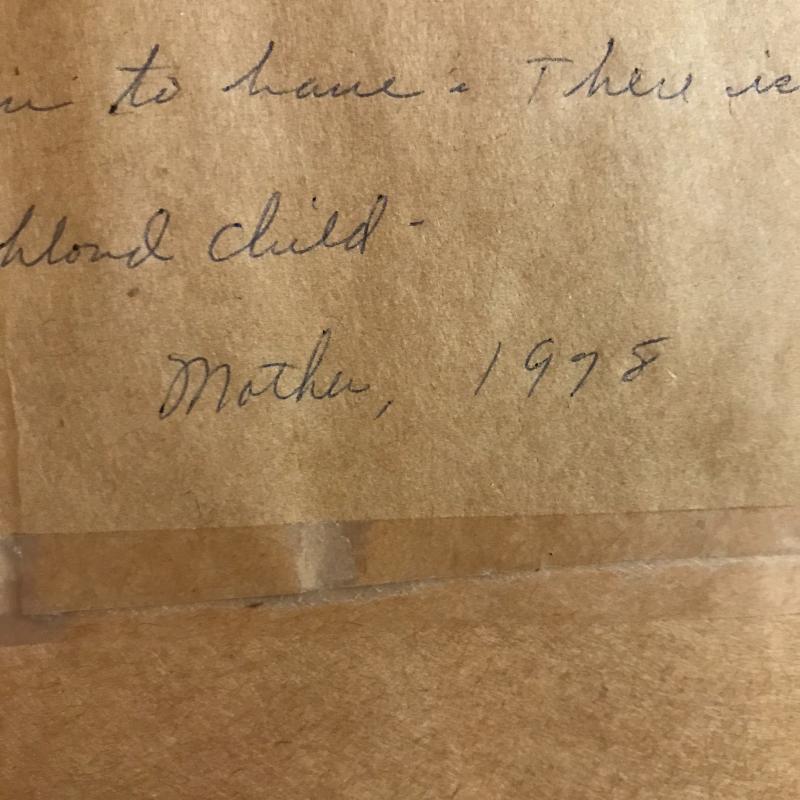 to have. There is
blond child-
Mother, 1978